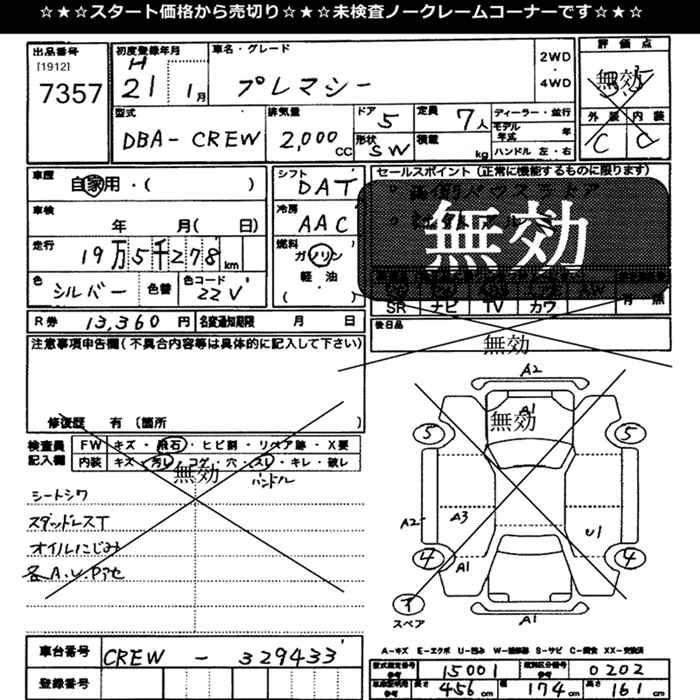 ☆★☆★スタート価格から売切り☆★☆★未検査ノークレームコーナーです☆★☆
出品番号
[1912]
7357
初度登録年月
H
21 1月
車名・グレード
プレマシー
2WD
4WD
評価点
無効
外装 内装
C C
型式
DBA-CREW
排気量
2,000cc
ドア
5
形状
SW
定員
7人
積載
kg
ディーラー・並行
モデル年式 年
ハンドル 左・右
車歴
自家用・( )
車検
年 月( 日)
走行
19万5千278km
色
シルバー
色替
色コード
22V
シフト
DAT
冷房
AAC
燃料
ガソリン
軽油
( )
セールスポイント(正常に機能するものに限ります)
無効
SR ナビ TV カワ
後日品
無効
R券 13,360円
名変通知期限 月 日
注意事項申告欄(不具合内容等は具体的に記入して下さい)
修復歴 有 (箇所 )
検査員
記入欄
FW キズ・飛石・ヒビ割・リペア跡・X要
内装 キズ・汚レ・コゲ・穴・スレ・キレ・破レ
ハンドル
無効
シートシワ
スタッドレスT
オイルにじみ
各A.U.Pアセ
A2
A1
無効
5 5
A2 A3 U1
4 4
A1
スペア
A1
A-キズ E-エクボ U-凹み W-補修跡 S-サビ C-腐食 XX-交換済
車台番号
CREW - 329433
登録番号
型式指定番号
15001
類別区分番号
0202
長さ 456cm 幅 174cm 高さ 161cm